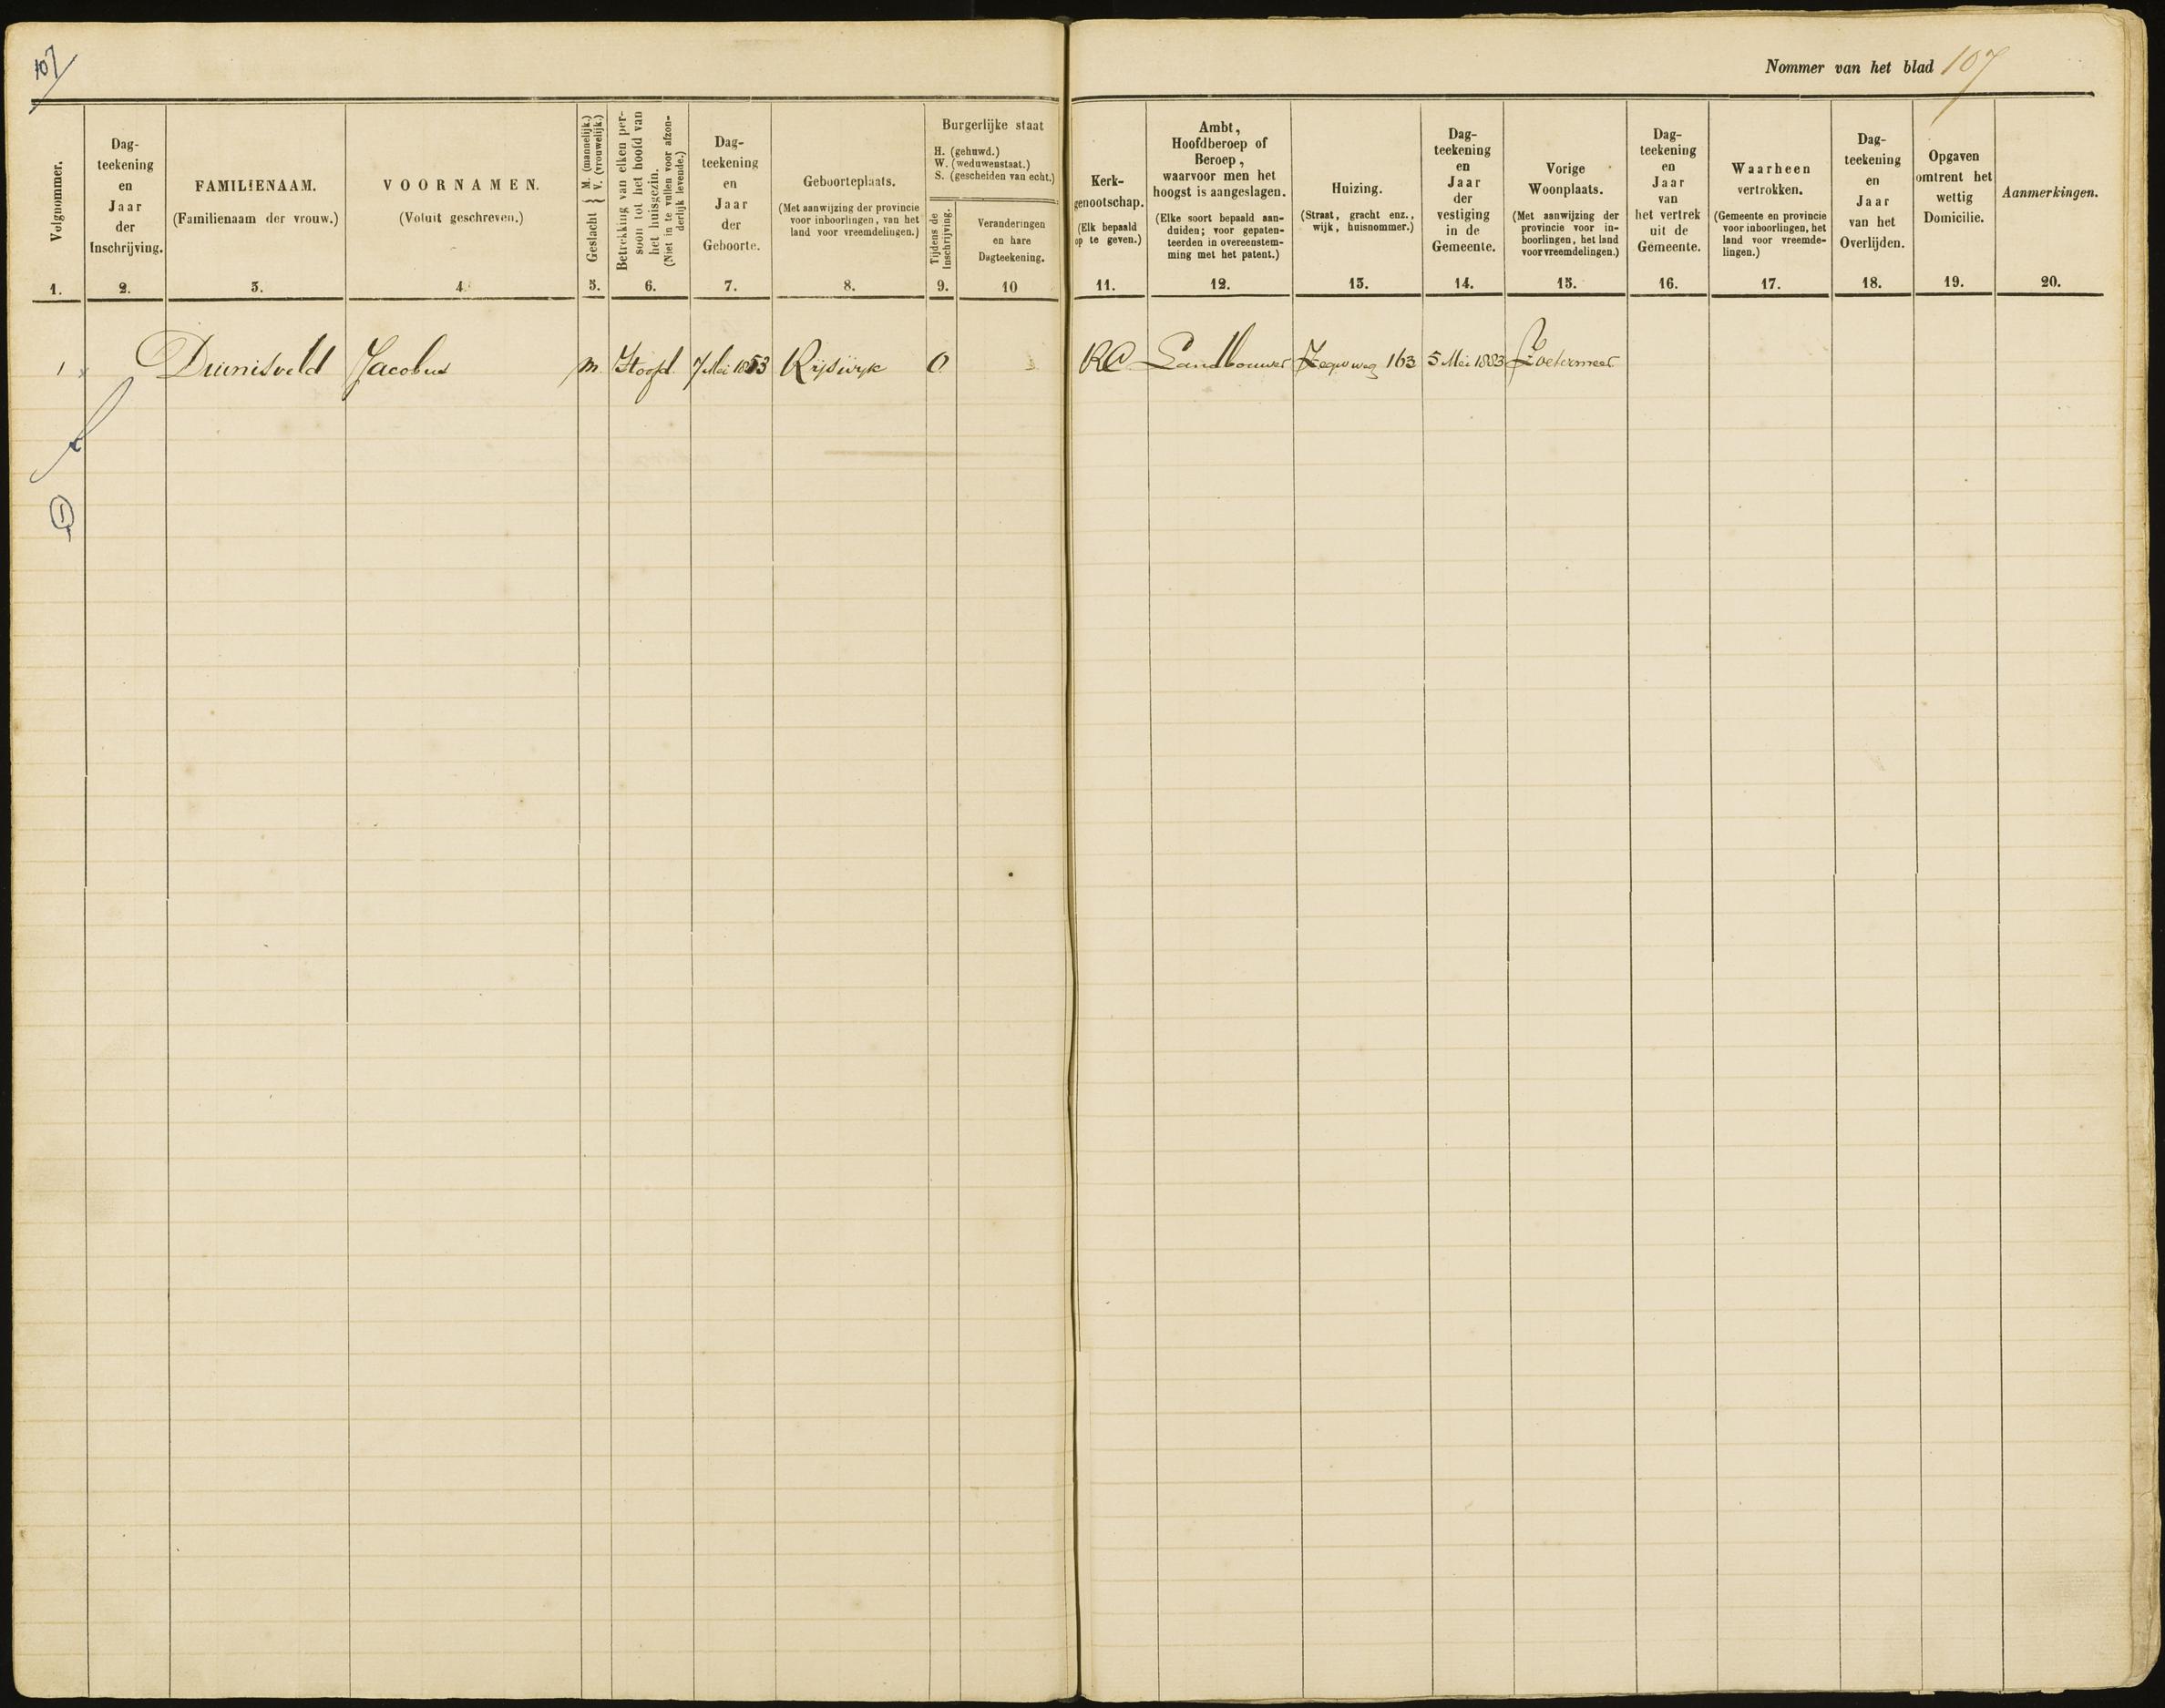 107
Nommer van het blad 107
Volgnommer.
1.
Dag-
teekening
en
Jaar
der
Inschrijving.
2.
FAMILIENAAM.
(Familienaam der vrouw.)
3.
VOORNAMEN.
(Voluit geschreven.)
4.
Geslacht { M. (mannelijk.)
V. (vrouwelijk.)
5.
Betrekking van elken per-
soon tot het hoofd van
het huisgezin.
(Niet in te vullen voor afzon-
derlijk levende.)
6.
Dag-
teekening
en
Jaar
der
Geboorte.
7.
Geboorteplaats.
(Met aanwijzing der provincie
voor inboorlingen, van het
land voor vreemdelingen.)
8.
Burgerlijke staat
H. (gehuwd.)
W. (weduwenstaat.)
S. (gescheiden van echt.)
Tijdens de
Inschrijving.
9.
Veranderingen
en hare
Dagteekening.
10
Kerk-
genootschap.
(Elk bepaald
op te geven.)
11.
Ambt,
Hoofdberoep of
Beroep,
waarvoor men het
hoogst is aangeslagen.
(Elke soort bepaald aan-
duiden; voor gepaten-
teerden in overeenstem-
ming met het patent.)
12.
Huizing.
(Straat, gracht enz.,
wijk, huisnommer.)
13.
Dag-
teekening
en
Jaar
der
vestiging
in de
Gemeente.
14.
Vorige
Woonplaats.
(Met aanwijzing der
provincie voor in-
boorlingen, het land
voor vreemdelingen.)
15.
Dag-
teekening
en
Jaar
van
het vertrek
uit de
Gemeente.
16.
Waarheen
vertrokken.
(Gemeente en provincie
voor inboorlingen, het
land voor vreemde-
lingen.)
17.
Dag-
teekening
en
Jaar
van het
Overlijden.
18.
Opgaven
omtrent het
wettig
Domicilie.
19.
Aanmerkingen.
20.
1 Duinisveld Jacobus m Hoofd 7 Mei 1853 Rijswijk O RC Landbouwer 163 5 Mei 1883 Zoetermeer
1